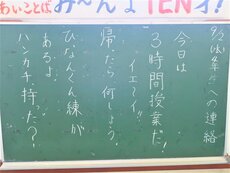 あいことば み〜んな TEN
9/2 への連絡
今日は
3時間授業だ!
イエーイ!!
帰たら何しよう。
ひなんくん練が
あるよ。
ハンカチ、持った?